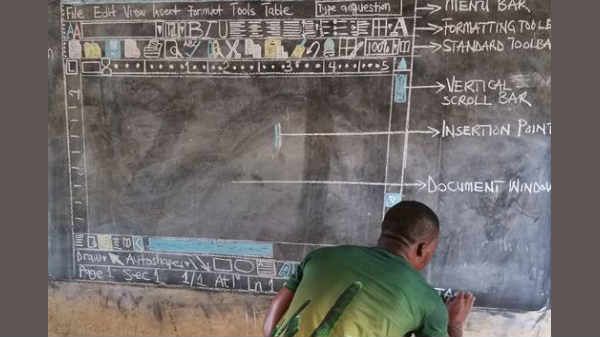 File Edit View Insert Format Tools Table Type a question
MENU BAR
AA B I U A
FORMATTING TOOLB
100%
STANDARD TOOLBA
L 1 2 3 4 5
VERTICAL
SCROLL BAR
INSERTION POINT
DOCUMENT WINDOW
Draw Autoshapes
Page 1 Sec 1 1/1 At 1" Ln 1
TA